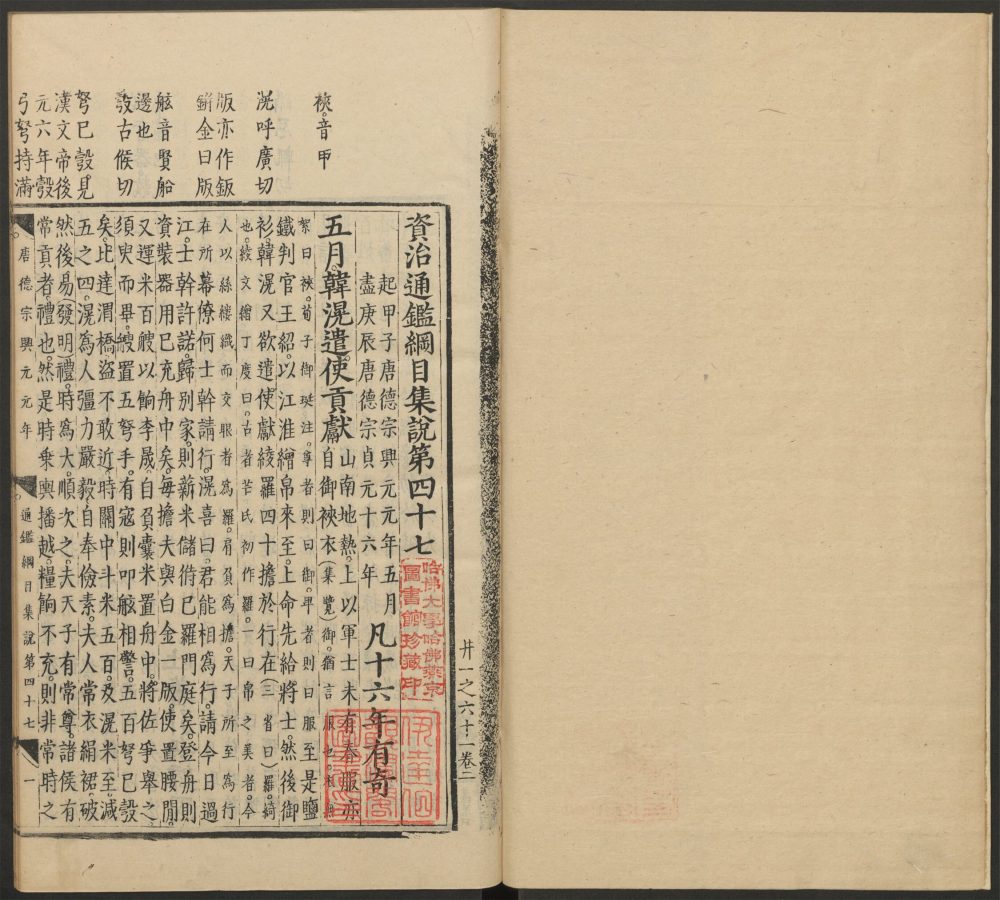 廾一之六十一卷二
裌音甲
滉呼廣切
版亦作鈑
鉼金曰版
舷音賢船
邊也
彀古候切
弩已彀見
漢文帝後
元六年彀
弓弩持滿
資治通鑑綱目集說第四十七
起甲子唐德宗興元元年五月
盡庚辰唐德宗貞元十六年
凡十六年有奇
哈佛大學哈佛燕京
圖書館珍藏印
五月韓滉遣使貢獻
山南地熱上以軍士未有春服亦
自御裌衣(集覽)御猶言服也
絮曰裌荀子御珽注尊者則曰御卑者則曰服至是鹽
鐵判官王紹以江淮繒帛來至上命先給將士然後御
衫韓滉又欲遣使獻綾羅四十擔於行在(三省曰)羅綺
也綾文繒丁度曰古者芒氏初作羅一曰帛之美者今
人以絲縷織而文服者為羅肩負為擔天子所至為行
在所幕僚何士幹請行滉喜曰君能相為行請今日過
江士幹許諾歸別家則薪米儲偫已羅門庭矣登舟則
資裝器用已充舟中矣每擔夫與白金一版使置腰間
又運米百艘以餉李晟自負囊米置舟中將佐爭舉之
須臾而畢艘置五弩手有寇則叩舷相警五百弩已彀
矣比達渭橋盜不敢近時關中斗米五百及滉米至減
五之四滉為人彊力嚴毅自奉儉素夫人常衣絹裙破
然後易(發明)禮時為大順次之夫天子有常尊諸侯有
常貢者禮也然是時乘輿播越糧餉不充則非常時之
唐德宗興元元年
通鑑綱目集說第四十七
一